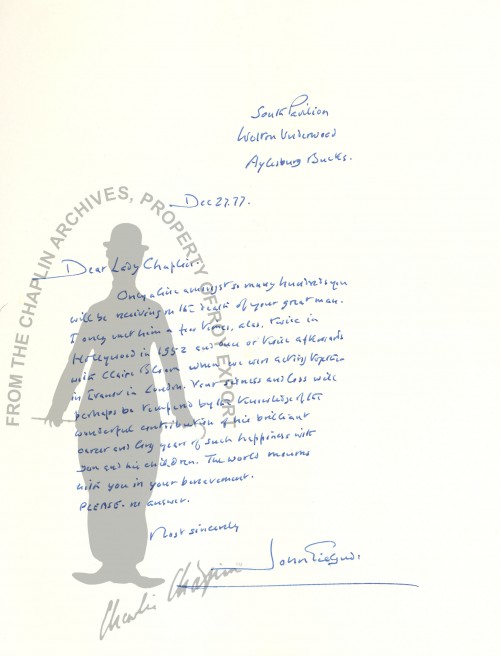 South Pavilion
Wotton Underwood
Aylesbury Bucks.
Dec 27.77.
Dear Lady Chaplin:
Only a line amongst so many hundreds you
will be receiving on the death of your great man.
I only met him a few times, alas, twice in
Hollywood in 1952 and once or twice afterwards
with Claire Bloom when we were acting together
in London. Your sadness and loss will
perhaps be tempered by the knowledge of the
wonderful contribution of his brilliant
career and long years of such happiness with
you and his children. The world mourns
with you in your bereavement.
PLEASE - no answer.
Most sincerely
John Gielgud.
FROM THE CHAPLIN ARCHIVES, PROPERTY OF ROY EXPORT
Charlie Chaplin